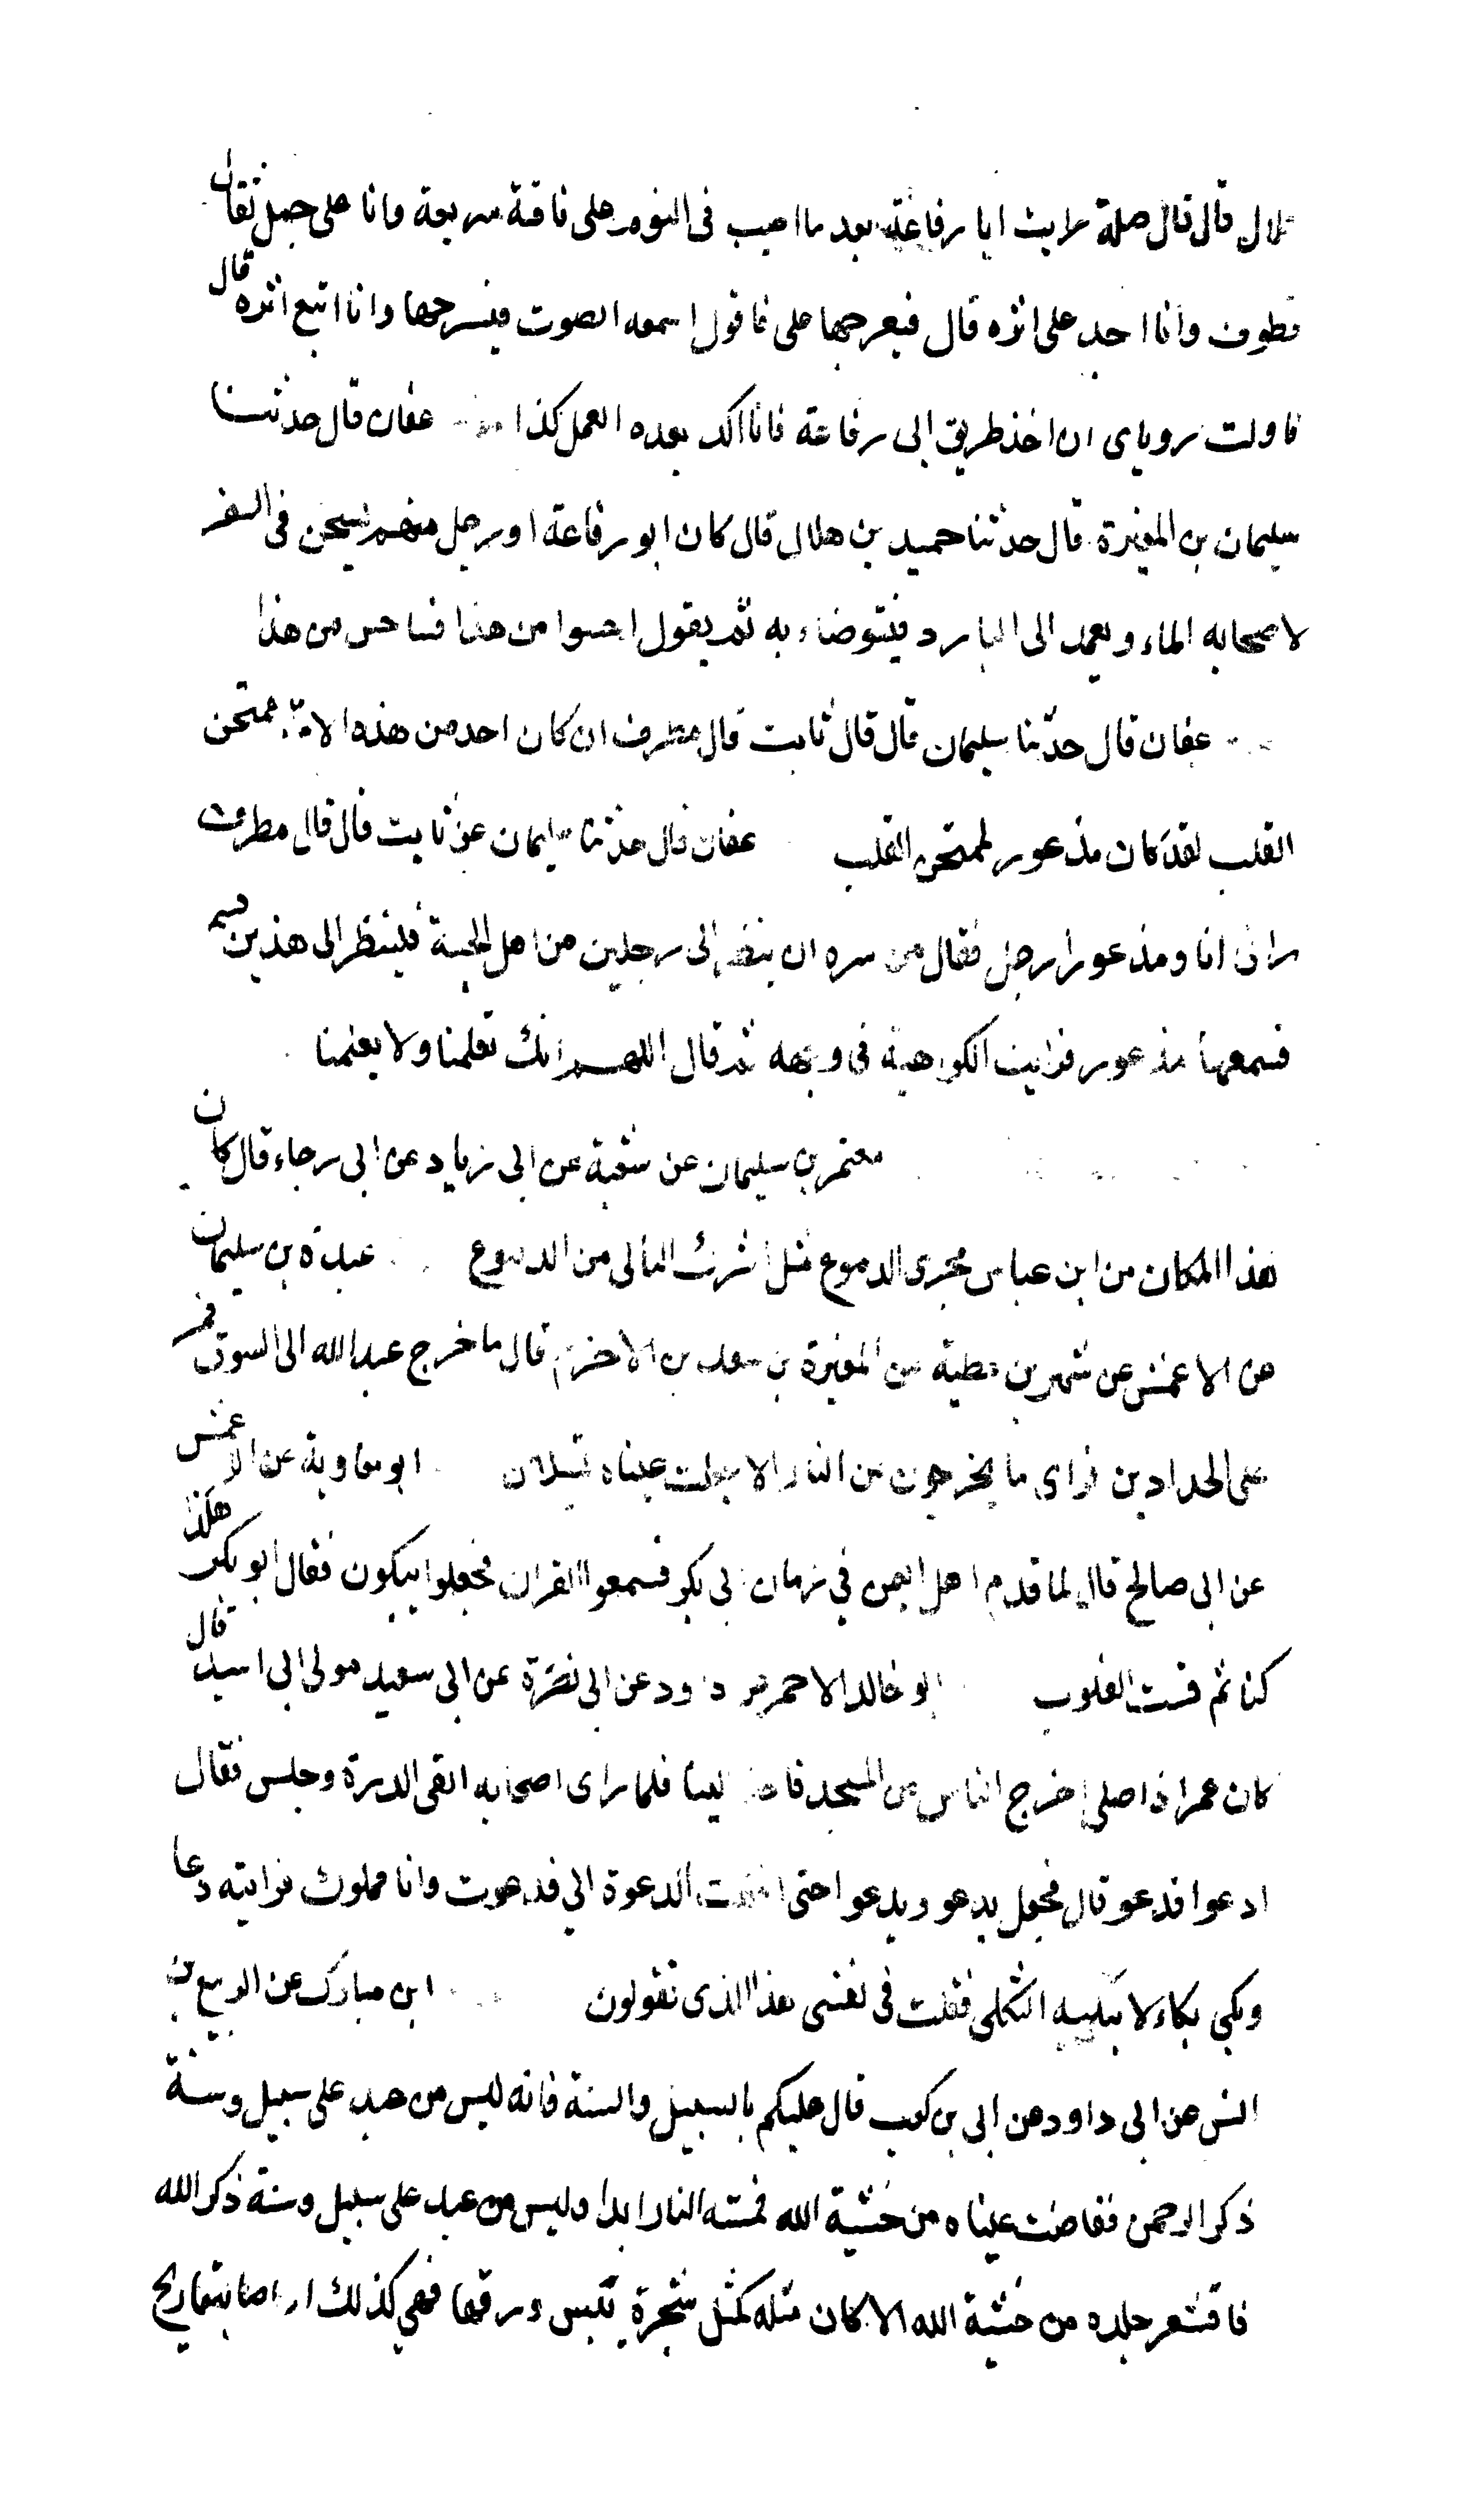 هلال قال قال صلة رايت ابا رفاعة بعد ما اصيب فى النوم على ناقة سريعة وانا على جمل ثقال
قطوف وانا اجد على اثره قال فيعرجها على فاقول اسمعه الصوت فيسرحها وانا اتبع اثره قال
فاولت روياى ان اخذ طريق ابى رفاعة فانا اكد بعده العمل كذا عفان قال حدثنا
سليمان بن المغيرة قال حدثنا حميد بن هلال قال كان ابو رفاعة او رجل منهم يسخن فى السفر
لاصحابه الماء ويعمد الى البارد فيتوضاء به ثم يقول احسوا من هذا فساحس من هذا
عفان قال حدثنا سليمان قال قال ثابت قال مطرف ان كان احد من هذه الامة ممتحن
القلب لقد كان مذعور لممتحن القلب عفان قال حدثنا سليمان عن ثابت قال قال مطرف
رانى انا ومذعورا رجل فقال من سره ان ينظر الى رجلين من اهل الجنة فلينظر الى هذين
فسمعها مذعور فرايت الكراهية فى وجهه ثم قال اللهم انك تعلمنا ولا يعلمنا
معتمر بن سليمان عن شعبة عن ابى زياد عن ابى رجاء قال كان
هذا المكان من ابن عباس مجرى الدموع مثل الشراك البالى من الدموع عبدة بن سليمان
عن الاعمش عن شمر بن عطية عن المغيرة بن سعد بن الاخرم قال ما خرج عبد الله الى السوق فمر
على الحدادين فراى ما يخرجون من النار الا جعلت عيناه تسيلان ابو معاوية عن الاعمش
عن ابى صالح قال لما قدم اهل اليمن في زمان ابى بكر فسمعوا القران فجعلوا يبكون فقال ابو بكر هكذا
كنا ثم قست القلوب ابو خالد الاحمر عن داود عن ابى نضرة عن ابى سعيد مولى ابى اسيد قال
كان عمر اذا صلى اخرج الناس من المسجد فاخذ الينا فلما راى اصحابه القى الدرة وجلس فقال
ادعوا فدعو قال فجعل يدعو ويدعوا حتى انتهت الدعوة الي فدعوت وانا مملوك فرايته دعا
وبكى بكاء لا تبكيه الثكلى فقلت فى نفسى هذا الذى تقولون ابن مبارك عن الربيع بن
انس عن ابى داود عن ابى بن كعب قال عليكم بالسبيل والسنة فانه ليس من عبد على سبيل وسنة
ذكر الرحمن ففاضت عيناه من خشية الله فمسته النار ابدا وليس من عبد على سبيل وسنة ذكر الله
فاقشعر جلده من خشية الله الا كان مثله كمثل شجرة يبس ورقها فهي كذلك اذ اصابتها ريح